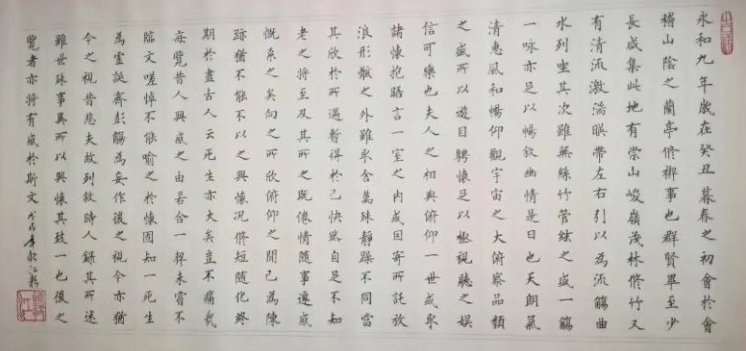 永和九年歲在癸丑暮春之初會於會
稽山陰之蘭亭脩禊事也群賢畢至少
長咸集此地有崇山峻嶺茂林脩竹又
有清流激湍暎帶左右引以為流觴曲
水列坐其次雖無絲竹管絃之盛一觴
一詠亦足以暢敘幽情是日也天朗氣
清惠風和暢仰觀宇宙之大俯察品類
之盛所以遊目騁懷足以極視聽之娛
信可樂也夫人之相與俯仰一世或取
諸懷抱晤言一室之內或因寄所託放
浪形骸之外雖趣舍萬殊靜躁不同當
其欣於所遇暫得於己快然自足不知
老之將至及其所之既倦情隨事遷感
慨系之矣向之所欣俯仰之間已為陳
跡猶不能不以之興懷況脩短隨化終
期於盡古人云死生亦大矣豈不痛哉
每覽昔人興感之由若合一契未嘗不
臨文嗟悼不能喻之於懷固知一死生
為虛誕齊彭殤為妄作後之視今亦猶
今之視昔悲夫故列敘時人錄其所述
雖世殊事異所以興懷其致一也後之
覽者亦將有感於斯文